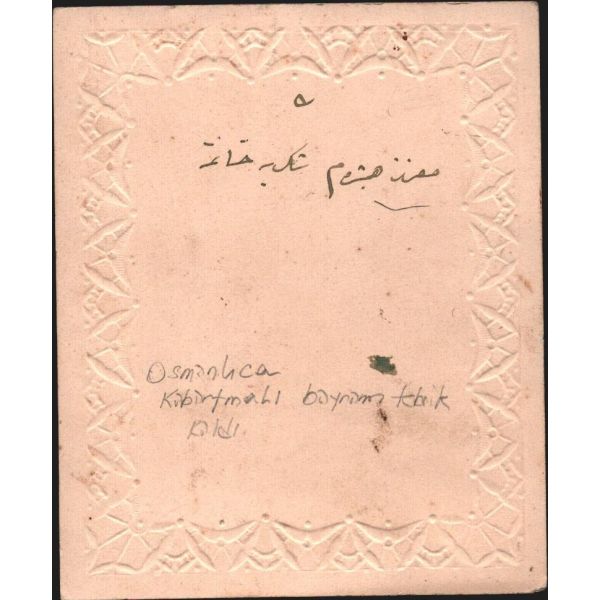 معزز همشیره‌م شکریه خانمه
Osmanlıca
Kabartmalı bayram tebrik
kartı